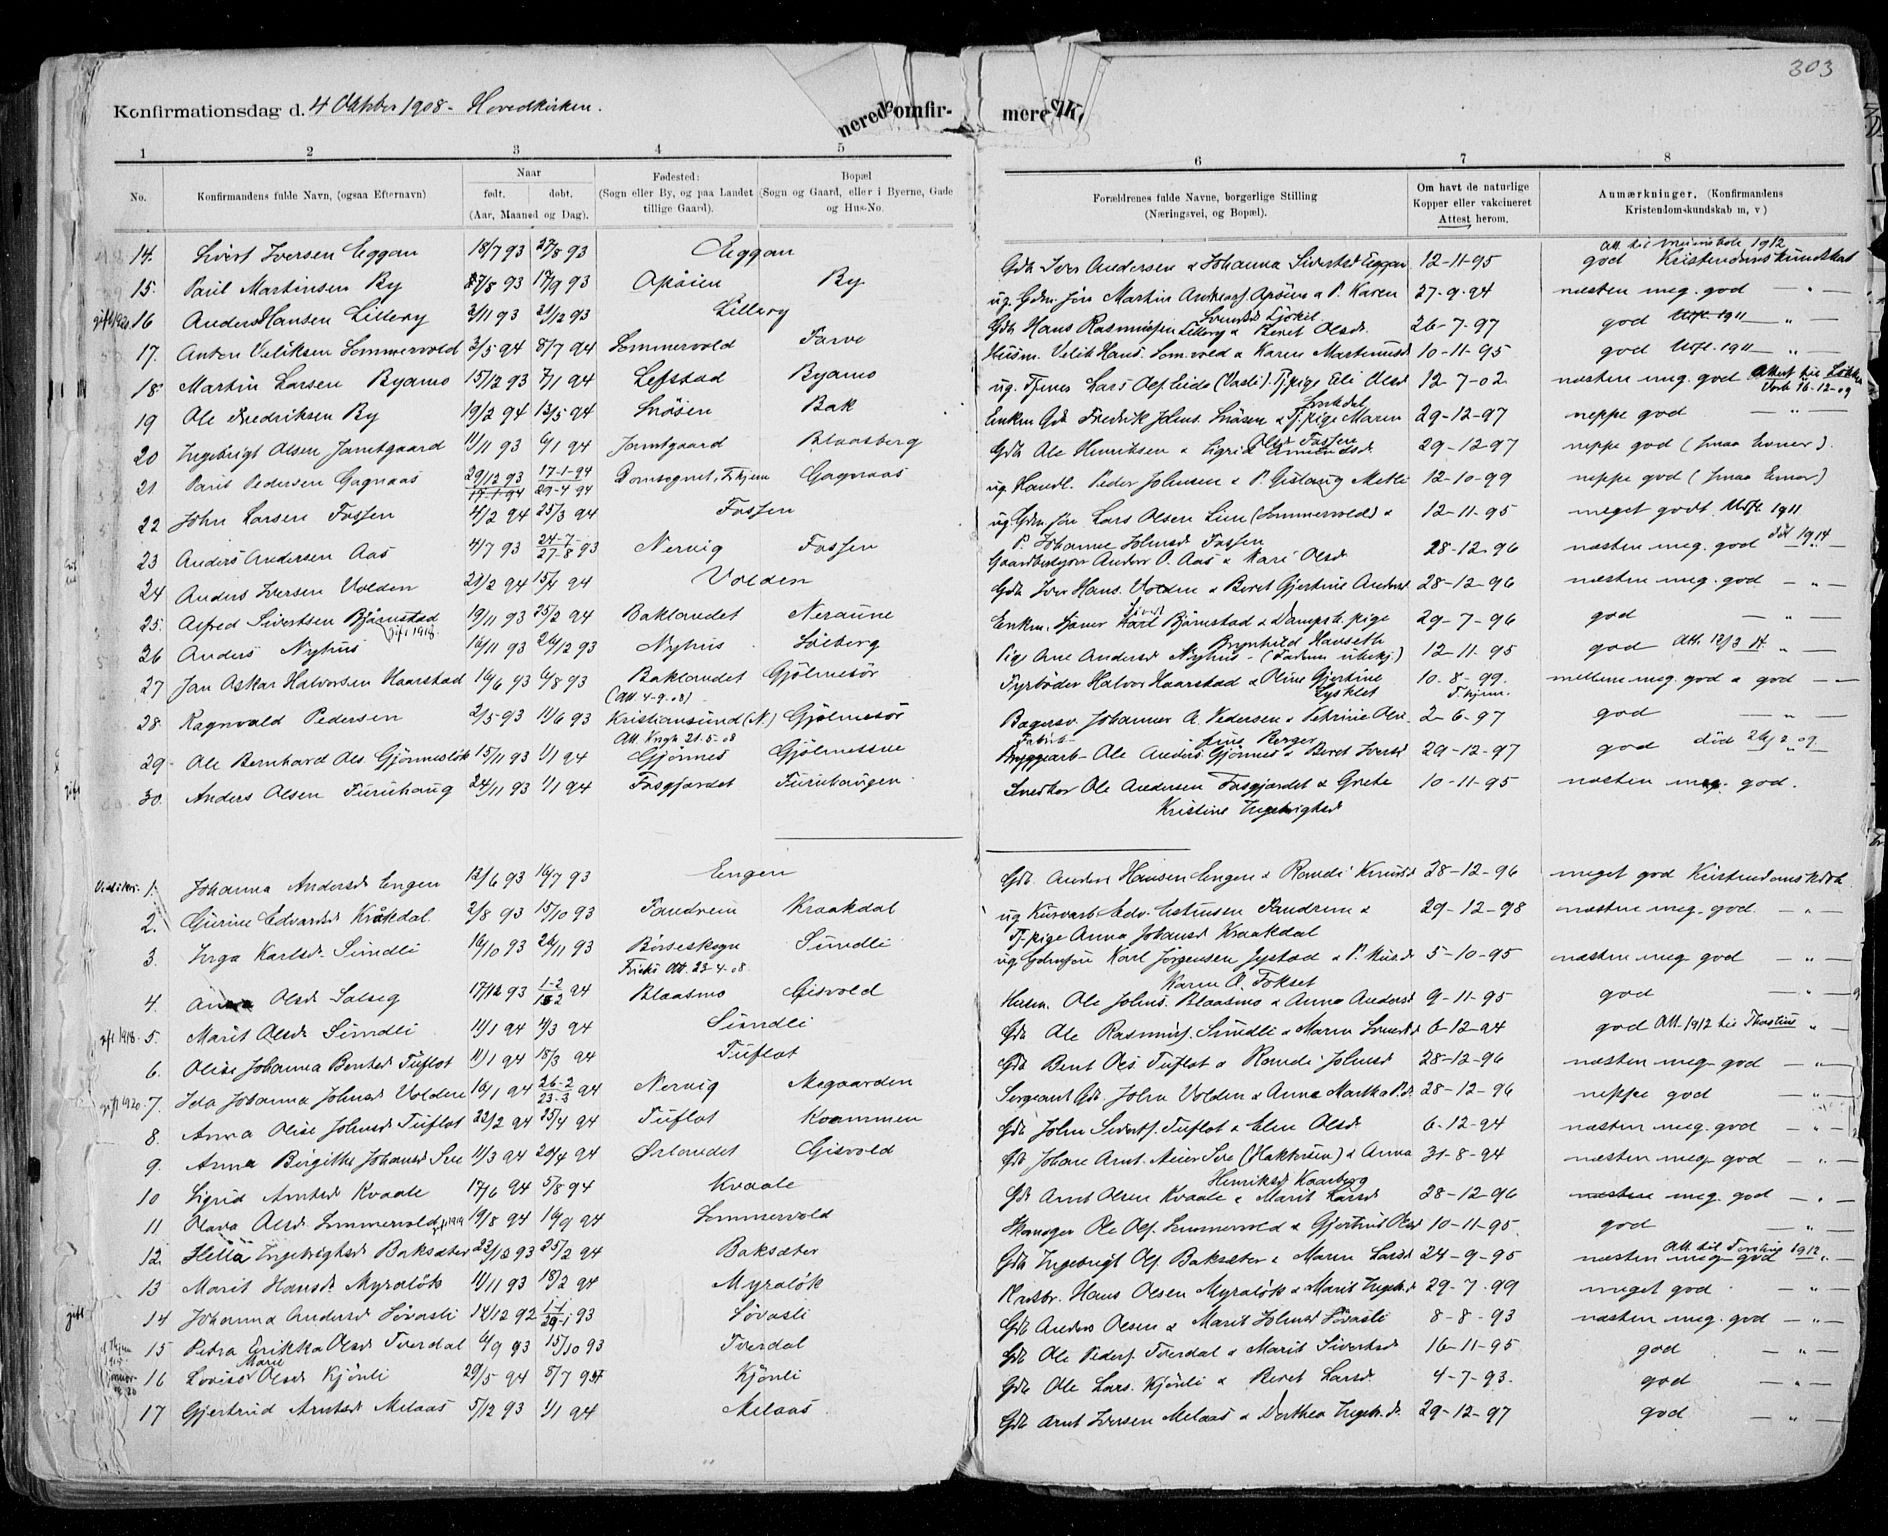 303
Konfirmationsdag d. 4 Oktober 1908 - Hovedkirken.
nerede omfir-
mere K.
1 2 3 4 5 6 7 8
No. Konfirmandens fulde Navn, (ogsaa Efternavn) Naar født. døbt. (Aar, Maaned og Dag). Fødested: (Sogn eller By, og paa Landet tillige Gaard). Bopæl (Sogn og Gaard, eller i Byerne, Gade og Hus-No. Forældrenes fulde Navne, borgerlige Stilling (Næringsvei, og Bopæl). Om havt de naturlige Kopper eller vakcineret Attest herom. Anmærkninger, (Konfirmandens Kristendomskundskab m, v)
14. Sivert Iversen Eggan 18/7 93 27/8 93 Eggan Gdb Iver Andersen & Johanna Sivertsd Eggan 12-11-95 god Kristendomskundskab
15. Paul Martinsen By 17/9 93 Opøien By ug. Gdm. søn Martin 27-9-94 næsten meg. god - " -
gift 1920 16 Anders Hansen Lillery 2/11 93 21/12 93 Lillery Gdb Hans Rasmussen Lillery & Beret Olsdr. 26-7-97 god Utfl. 1911 - " -
17. Anton Veliksen Sommervold 3/5 94 8/7 94 Sommervold Farve Husm. Velik Hans. Som.vold & Karen Martinusd 10-11-95 god Utfl. 1911 - " -
18. Martin Larsen Byamo 15/12 93 7/1 94 Lefstad Byamo ug. Tjenes Lars Olsen 12-7-02 næsten meg. god
19 Ole Fredriksen By 19/2 94 13/5 94 Snøsen Bak Enkm Gdb Fredrik Johns. Snøsen & Tj. pige Maren 29-12-97 neppe god - " -
20 Ingebrigt Olsen Jamtgaard 11/11 93 6/1 94 Jamtgaard Blaasberg Gdb Ole Henriksen & Sigrid 29-12-97 neppe god (smaa Evner).
21 Paul Pedersen Gagnaas 29/12 93 17-1-94 29-4 94 Domsognet, Tr.hjem Gagnaas ug. Handl. Peder Johnsen & P. Gislaug Metli 12-10-99 neppe god (smaa Evner)
22 John Larsen Fossen 4/2 94 25/3 94 Fossen ug Gdm søn Lars Olsen Lien (Sommervold) & P. Johanne Johnsd Fossen 12-11-95 meget godt Utfl. 1911
23 Anders Andersen Aas 4/7 93 24-7 27-8 93 Nervig Fossen Gaardbestyrer Anders O. Aas & Kari Olsd 28-12-96 næsten meg. god død 1914
24 Anders Iversen Volden 21/2 94 15/4 94 Volden Gdb Iver Hans. Volden & Beret Gjertine Andersd 28-12-96 næsten meg. god - " -
25. Alfred Sivertsen Bjørnstad gift 1918. 19/11 93 25/2 94 Baklandet Neraune Enkm. Tjener Sivert Bjørnstad & Dampsk. pige Brynhild Hanseth 29-7-96 god - " -
26 Anders Nyhus 16/11 93 26/12 93 Nyhus Solberg Pige Ane Andersd Nyhus - (Faderen ubekj.) 12-11-95 god Att. 12/3 14. "
27 Jan Oskar Halvorsen Haarstad 16/6 93 6/8 93 Baklandet (Att. 4-9-08) Gjølmesør Fyrbøder Halvor Haarstad & Oline Gjertine Lysklet 10-8-99. T.hjem. mellem meg. god & god - " -
28 Ragnvald Pedersen 2/5 93 11/6 93 Kristiansund (N) Att. 21-5-08 Gjølmesør Bagersv. Johannes A. Pedersen & Petrine Olea Berger 2-6-97 god - " -
29 Ole Bernhard Ols. Gjønneslök 15/11 93 1/1 94 Gjønnes Gjølmesaue Fabrik- Ole Anders. Gjønnes & Beret Iversd 29-12-97 god død 26/2 09
30. Anders Olsen Furuhaug 24/11 93 1/1 94 Fosgjardet Furuhaugen Snedker Ole Andersen Fosgjardet & Grete Kristine Ingebrigtsd 10-11-95 næsten meg. god.
1. Johanna Andersd Engen 12/6 93 16/7 93 Engen Gdb. Anders Hansen Engen & Randi Knudsd 28-12-96 meget god Kristendomskdsk
2. Gurine Edvardsd Kråkdal 2/8 93 15/10 93 Tandrem Kraakdal ug Kurvarb Edv. Estensen Tandrem & Tj. pige Anna Johansd Kraakdal 29-12-98 næsten meg. god. - " -
3. Inga Karlsd Sundli 16/10 93 26/11 93 Børseskogn Sundli Att. 23-4-08 ug. Gdm søn Karl Jørgensen Jystad & P. Karen O. Fokset 5-10-95 næsten meg god - " -
4. Anna Olsd Solsig 17/12 93 1-2 94 Blaasmo Gisvold Ole Johns. Blaasmo & Anna Andersd 9-11-95 god - " -
gift 1918. 5. Marit Olsd Sundli 11/1 94 4/3 94 Sundli Gdb Ole Rasmuss. Sundli & Maren 6-12-94 god Att. 1912 "
6. Olise Johanna Bentsd Tuflot 11/1 94 18/3 94 Tuflot Gdb Bent Ols Tuflot & Randi Johnsd 28-12-96 næsten meg. god - " -
gift 1920. 7. Ida Johanna Johnsd Volden 16/1 94 26-2 23-3 94 Nervig Megaarden Sergeant Gdb. John Volden & Anna Martha P.d. 28-12-96 neppe god - " -
8. Anna Olise Johnsd Tuflot 22/2 94 25/4 94 Tuflot Kvammen Gdb John Siverts. Tuflot & Elen Olsd 6-12-94 næsten meg. god - " -
9. Anna Birgithe Johansd Sve 11/3 94 20/4 94 Ørlandet Gisvold Gdb Johan Arnt Meier Sve (Haktorsen) & Anna Henriksd Kaarberg 31-8-94 næsten meg god - " -
10 Sigrid Arntsd Kvaale 17/6 94 5/8 94 Kvaale Gdb Arnt Olsen Kvaale & Marit Larsd 28-12-96 næsten meg. god - " -
11 Olava Olsd Sommervold gift 1919 19/8 94 16/9 94 Sommervold Ole Ols. Sommervold & Gjertrud Olsd 10-11-95. god - " -
12. Ingebrigtsd Baksæter 22/12 93 25/2 94 Baksæter Gdb Ingebrigt Ols. Baksæter & Maren Larsd 24-9-95 næsten meg god 1912 "
13 Marit Hansd. Myraløk 11/11 93 18/2 94 Myraløk Hans Olsen Myraløk & Marit Ingebr.d 29-7-99 meget god. - " -
gift 14 Johanna Andersd Søvasli 14/12 92 1-1 29-1 93 Søvasli Gdb Anders Olsen & Marit Johnsd Søvasli 8-8-93 næsten meg. god - " -
15 Petra Erikka Olsd Tverdal 6/9 93 15/10 93 Tverdal Gdb Ole Peders. Tverdal & Marit Sivertsd 16-11-95 god - " -
16 Lovise Marie Olsd Kjønli 29/5 94 8/7 94 Kjønli Gdb Ole Lars. Kjønli & Beret Larsd. 4-7-93. god - " -
17 Gjertrud Arntsd Melaas 5/12 93 1/1 94 Melaas Gdb Arnt Iversen Melaas & Dorthea Ingebr.d. 29-12-97 god - " -